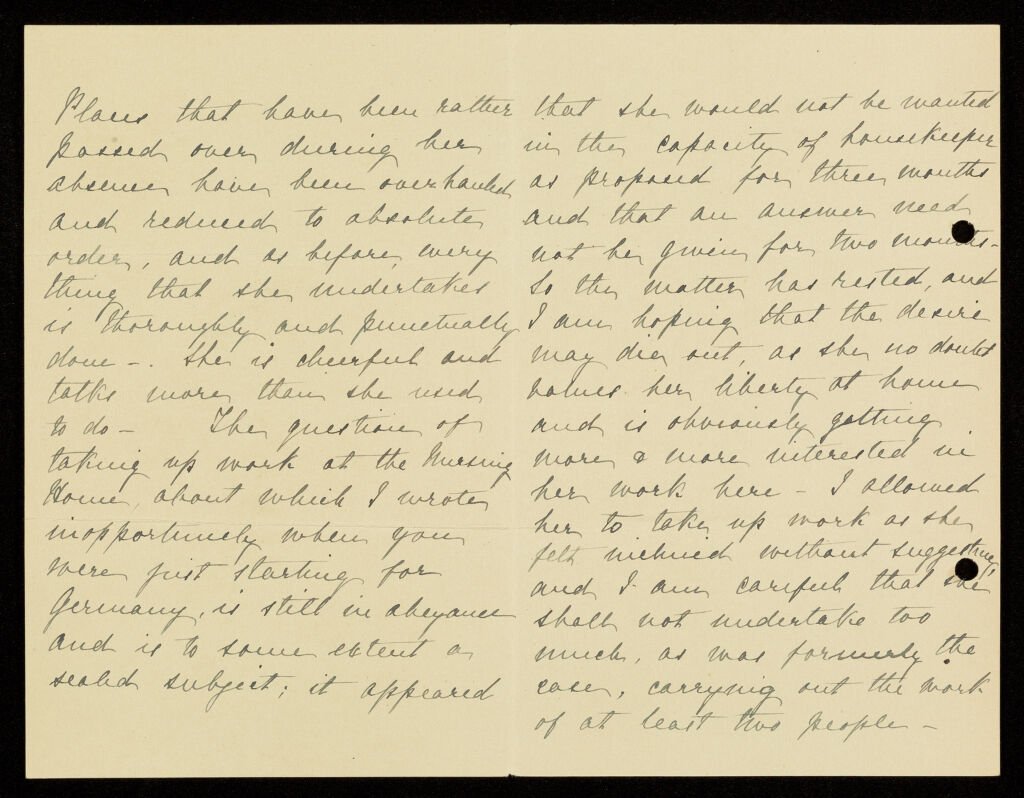 Places that have been rather
passed over during her
absence have been overhauled
and reduced to absolute
order, and as before, every
thing that she undertakes
is thoroughly and punctually
done -. She is cheerful and
talks more than she used
to do - The question of
taking up work at the Nursing
Home, about which I wrote
inopportunely when you
were just starting for
Germany, is still in abeyance
and is to some extent a
sealed subject; it appeared
that she would not be wanted
in the capacity of housekeeper
as proposed for three months
and that an answer need
not be given for two months-
So the matter has rested, and
I am hoping that the desire
may die out as she no doubt
values her liberty at home
and is obviously getting
more & more interested in
her work here - I allowed
her to take up work as she
felt inclined without suggesting,
and I am careful that she
shall not undertake too
much, as was formerly the
case, carrying out the work
of at least two people -